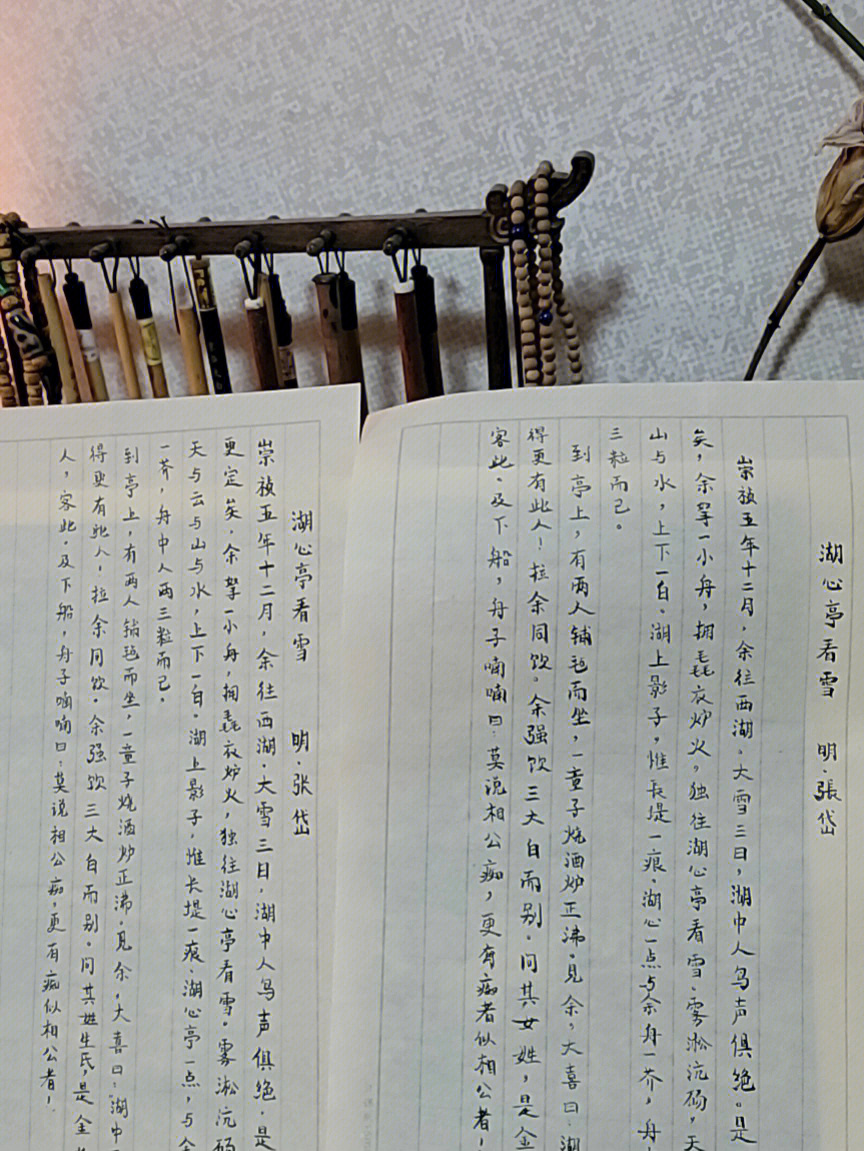 湖心亭看雪 明·張岱
崇祯五年十二月，余往西湖。大雪三日，湖中人鸟声俱绝。是
矣，余拏一小舟，拥毳衣炉火，独往湖心亭看雪。雾凇沆砀，天
山与水，上下一白。湖上影子，惟长堤一痕、湖心一点与余舟一芥，舟
三粒而已。
到亭上，有两人铺毡而坐，一童子烧酒炉正沸。见余，大喜曰：湖
得更有此人！拉余同饮。余强饮三大白而别。问其女姓，是金
客此。及下船，舟子喃喃曰：莫说相公痴，更有痴者似相公者！
湖心亭看雪 明·张岱
崇祯五年十二月，余往西湖。大雪三日，湖中人鸟声俱绝。是
更定矣，余拏一小舟，拥毳衣炉火，独往湖心亭看雪。雾凇沆砀
天与云与山与水，上下一白。湖上影子，惟长堤一痕、湖心亭一点，与余
一芥，舟中人两三粒而已。
到亭上，有两人铺毡而坐，一童子烧酒炉正沸。见余，大喜曰：湖中
得更有此人！拉余同饮。余强饮三大白而别。问其姓生氏，是金
人，客此。及下船，舟子喃喃曰：莫说相公痴，更有痴似相公者！